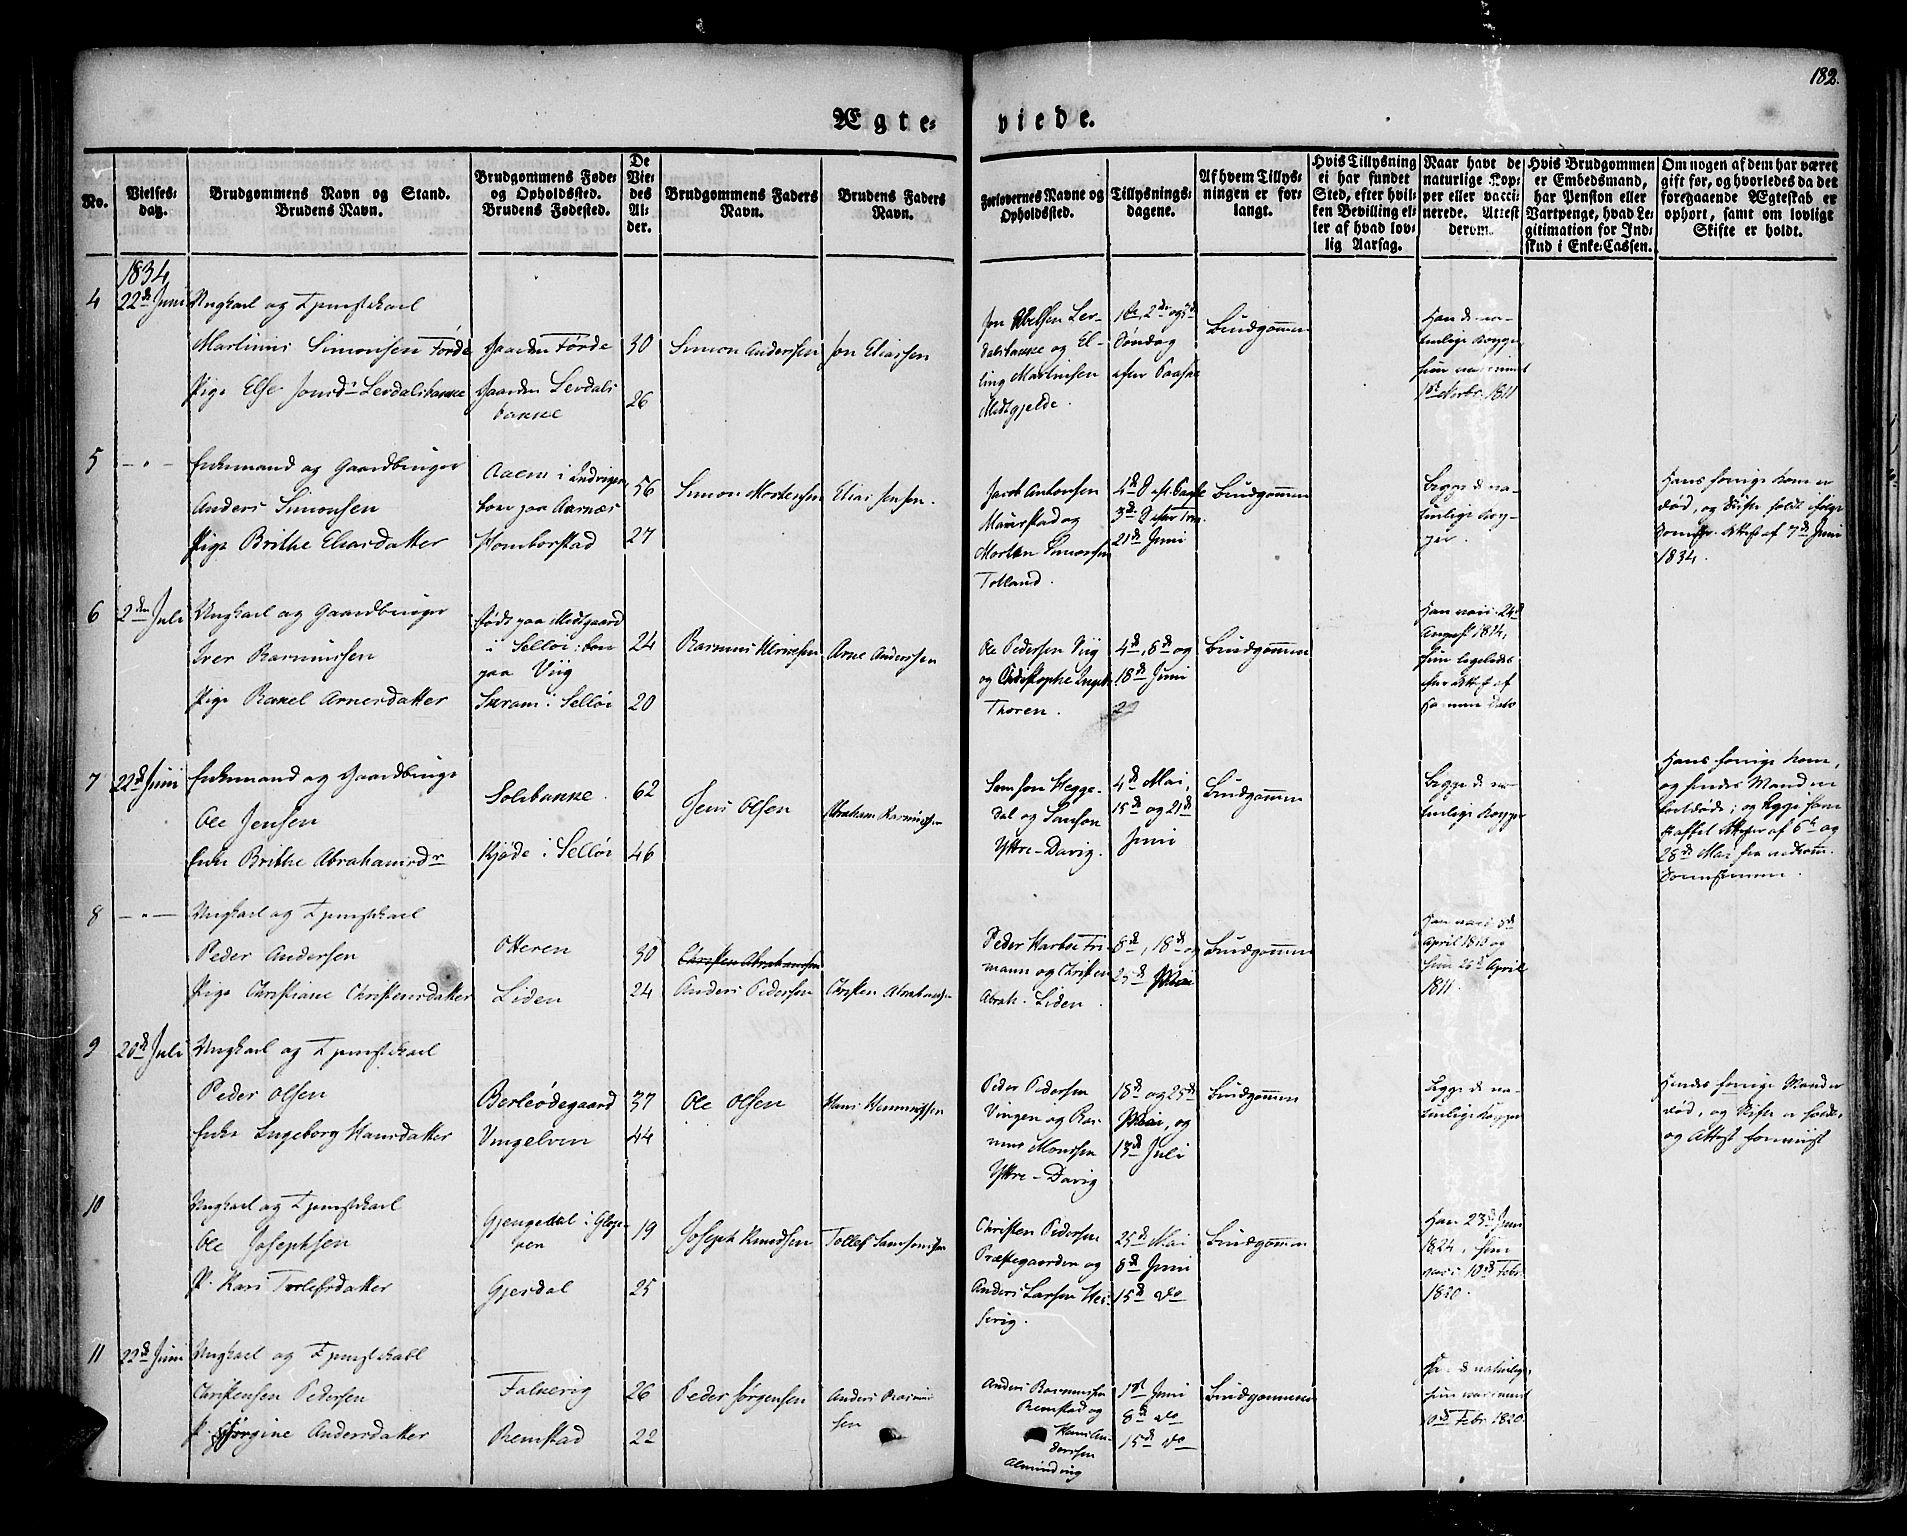 182.
Ægte-
viede.
No.
Vielses-
dag.
Brudgommens Navn og Stand.
Brudens Navn.
Brudgommens Føde-
og Opholdssted.
Brudens Fødested.
De
Vie-
des
Al-
der.
Brudgommens Faders
Navn.
Brudens Faders
Navn.
Forlovernes Navne og
Opholdssted.
Tillysnings-
dagene.
Af hvem Tillys-
ningen er for-
langt.
Hvis Tillysning
ei har fundet
Sted, efter hvil-
ken Bevilling el-
ler af hvad lov-
lig Aarsag.
Naar havt de
naturlige Kop-
per eller vacci-
nerede. Attest
derom.
Hvis Brudgommen
er Embedsmand,
har Pension eller
Vartpenge, hvad Le-
gitimation for Ind-
skud i Enke-Cassen.
Om nogen af dem har været
gift før, og hvorledes da det
foregaaende Ægteskab er
ophørt, samt om lovligt
Skifte er holdt.
1834
4
22de Juni
Ungkarl og Tjenestekarl
Martinus Simonsen Førde
Pige Else Jonsd. Lerdalsbakke
Gaarden Førde
Gaarden Lerdals
bakke
30
26
Simon Anderssen
Jon Eliassen
Jon Abelsen Ler-
dalsbakke og El-
ling Martinsen
Midtgjelde.
1ste, 2den og 3die
Søndag
efter Paaske
Brudgommen
Han de na-
turlige Kopper
hun vaccineret
1811
5
Enkemand og Gaardbruger
Anders Simonsen
Pige Brithe Eliasdatter
Aaem i Indvigen
boer paa Aarnæs
Homborstad
56
27
Simon Mortensen
Elias Jensen.
Jacob Antonsen
Maurstad og
Morten Simonsen
Tolland.
4de S. ef. Paaske
3de S. efter Trin.
21de Juni
Brudgommen
Begge de na-
turlige Kop-
per.
Hans forrige Kone er
død, og Skifte holdt ifølge
Attest af 7de Juni
1834.
6
2den Juli
Ungkarl og Gaardbruger
Iver Rasmussen
Pige Rakel Arnesdatter
født paa Midtgaard
i Selløe: boer
paa Viig
Skram i Selløe
24
20
Rasmus Iversen
Arne Anderssen
Ole Pedersen Viig
og Christopher
Thoren.
4de, 8de og
18de Juni
Brudgommen
Han vacc. 24de
August 1814,
hun ligeledes
efter Attest af
samme Dato
7
22de Juni
Enkemand og Gaardbruger
Ole Jensen
Enke Brithe Abrahamsdr
Solibakke.
Kjøde i Selløe
62
46
Jens Olsen
Abraham Rasmussen
Samson Hegge-
dal og Samson
Yttre-Davig.
4de Mai,
15de og 21de
Juni
Brudgommen
Begge de na-
turlige Kopper
Hans forrige Kone,
og hendes Mand er
bortdøde; og begge have
skaffet Attester af 6te og
28de Mai fra vedkom.
8
Ungkarl og Tjenestekarl
Peder Andersen
Pige Christiane Christensdatter
Otteren
Liden
30
24
Christen Abrahamsen
Anders Pedersen
Christen Abrahamsen
Peder Harboe Fri-
mann og Christen
Abrah. Liden.
8de, 18de og
25de Mai
Brudgommen
Han vacc. 3de
April 1813 og
hun 26de April
1811.
9
20de Juli
Ungkarl og Tjenestekarl
Peder Olsen
Enke Ingeborg Hansdatter
Berleødegaard
Vingelven
37
44
Ole Olsen
Hans Hemmingsen
Peder Pedersen
Vingen og Ras-
mus Monssen
Yttre-Davig
18de og 25de
Mai, og
13de Juli
Brudgommen
Begge de na-
turlige Kopper
Hendes forrige Mand er
død, og Skifte er holdt,
og Attest forevist
10
Ungkarl og Tjenestekarl
Ole Josephsen
P. Kari Torlefsdatter
Gjengedal i Glop-
pen
Gjerdal
19
25
Joseph Knudsen
Tollef Samsonsen
Christen Pedersen
Præstegaarden og
Anders Larsen Hes-
tevig.
25de Mai
8de Juni
15de do
Brudgommen
Han 23de Juni
1824, hun
vacc. 10de Febr
1820.
11
22de Juni
Ungkarl og Tjenestekarl
Christensen Pedersen
P. Jørgine Andersdatter
Falkevig
Remstad
26
22
Peder Jørgensen
Anders Rasmus-
sen
Anders Rasmussen
Remstad og
Hans An-
derssen
Almending
1ste Juni
8de do
15de do
Brudgommen
Ha. de naturlige
hun vaccineret
10de Febr 1820.